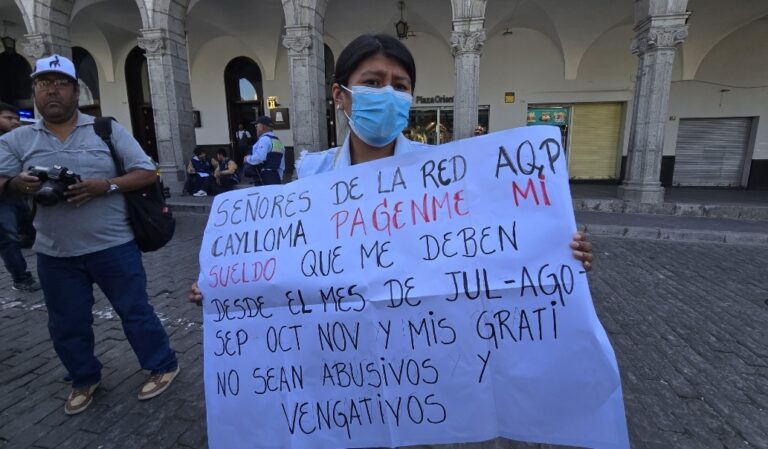 Plaza Orient
SEÑORES DE LA RED AQP
CAYLLOMA PAGENME MI
SUELDO QUE ME DEBEN
DESDE EL MES DE JUL-AGO-
SEP OCT NOV Y MIS GRATI
NO SEAN ABUSIVOS Y
VENGATIVOS